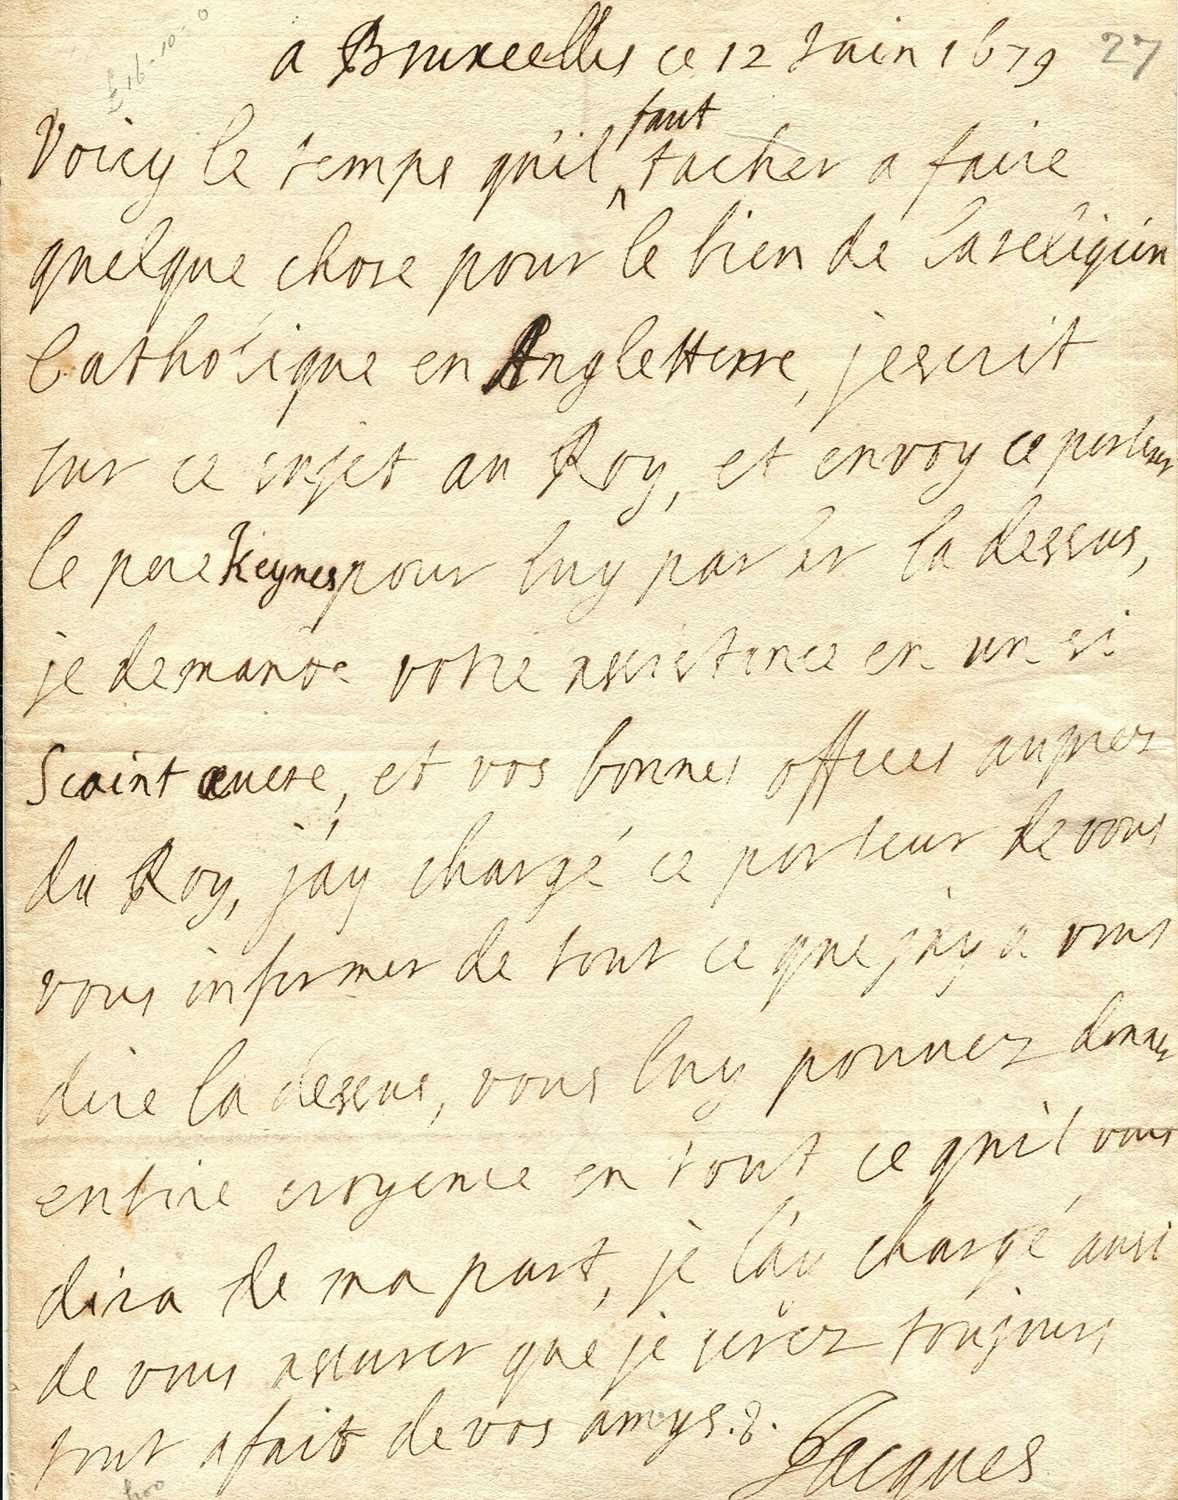 £16-10-0
a Bruxcelles ce 12 Juin 1679 27
faut
Voicy le temps qu'il ^ tacher a faire
quelque chose pour le bien de la religion
Catholique en Angletterre, j'escrit
sur ce sujet au Roy, et envoy ce porteur
le pere Keynes pour luy parler la dessus,
je demande votre assistence en un si
Scaint œuvre, et vos bonnes offices auprez
du Roy, j'ay chargé ce porteur de vous
vous informer de tout ce que j'ay a vous
dire la dessus, vous luy pouvez donner
entire croyence en tout ce qu'il vous
dira de ma part, je l'ay chargé aussi
de vous assurer que je serez toujours
tout a fait de vos amys.
Jacques